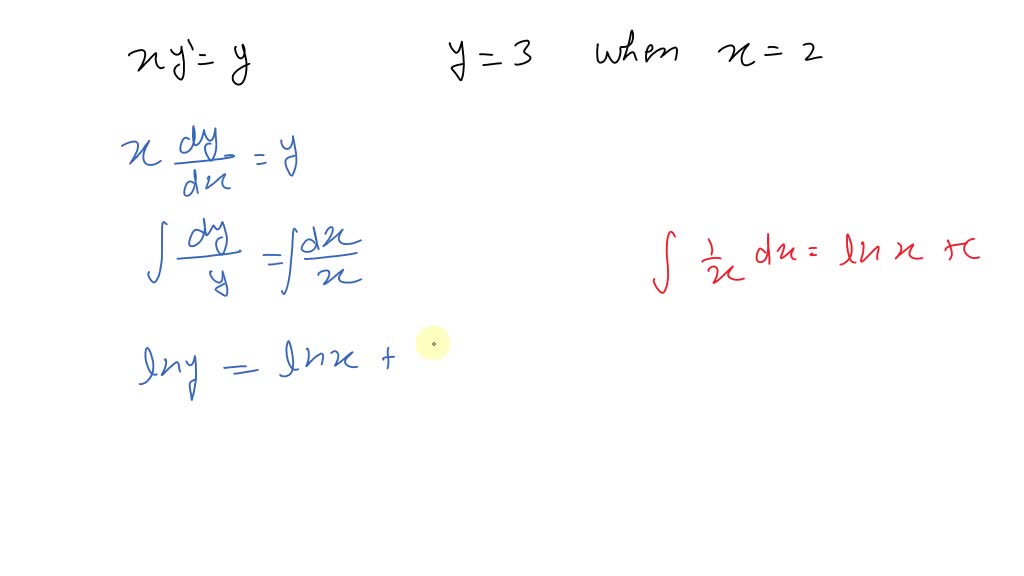 xy' = y y = 3 when x = 2
x dy/dx = y
∫ dy/y = ∫ dx/x ∫ 1/x dx = ln x + c
ln y = ln x +